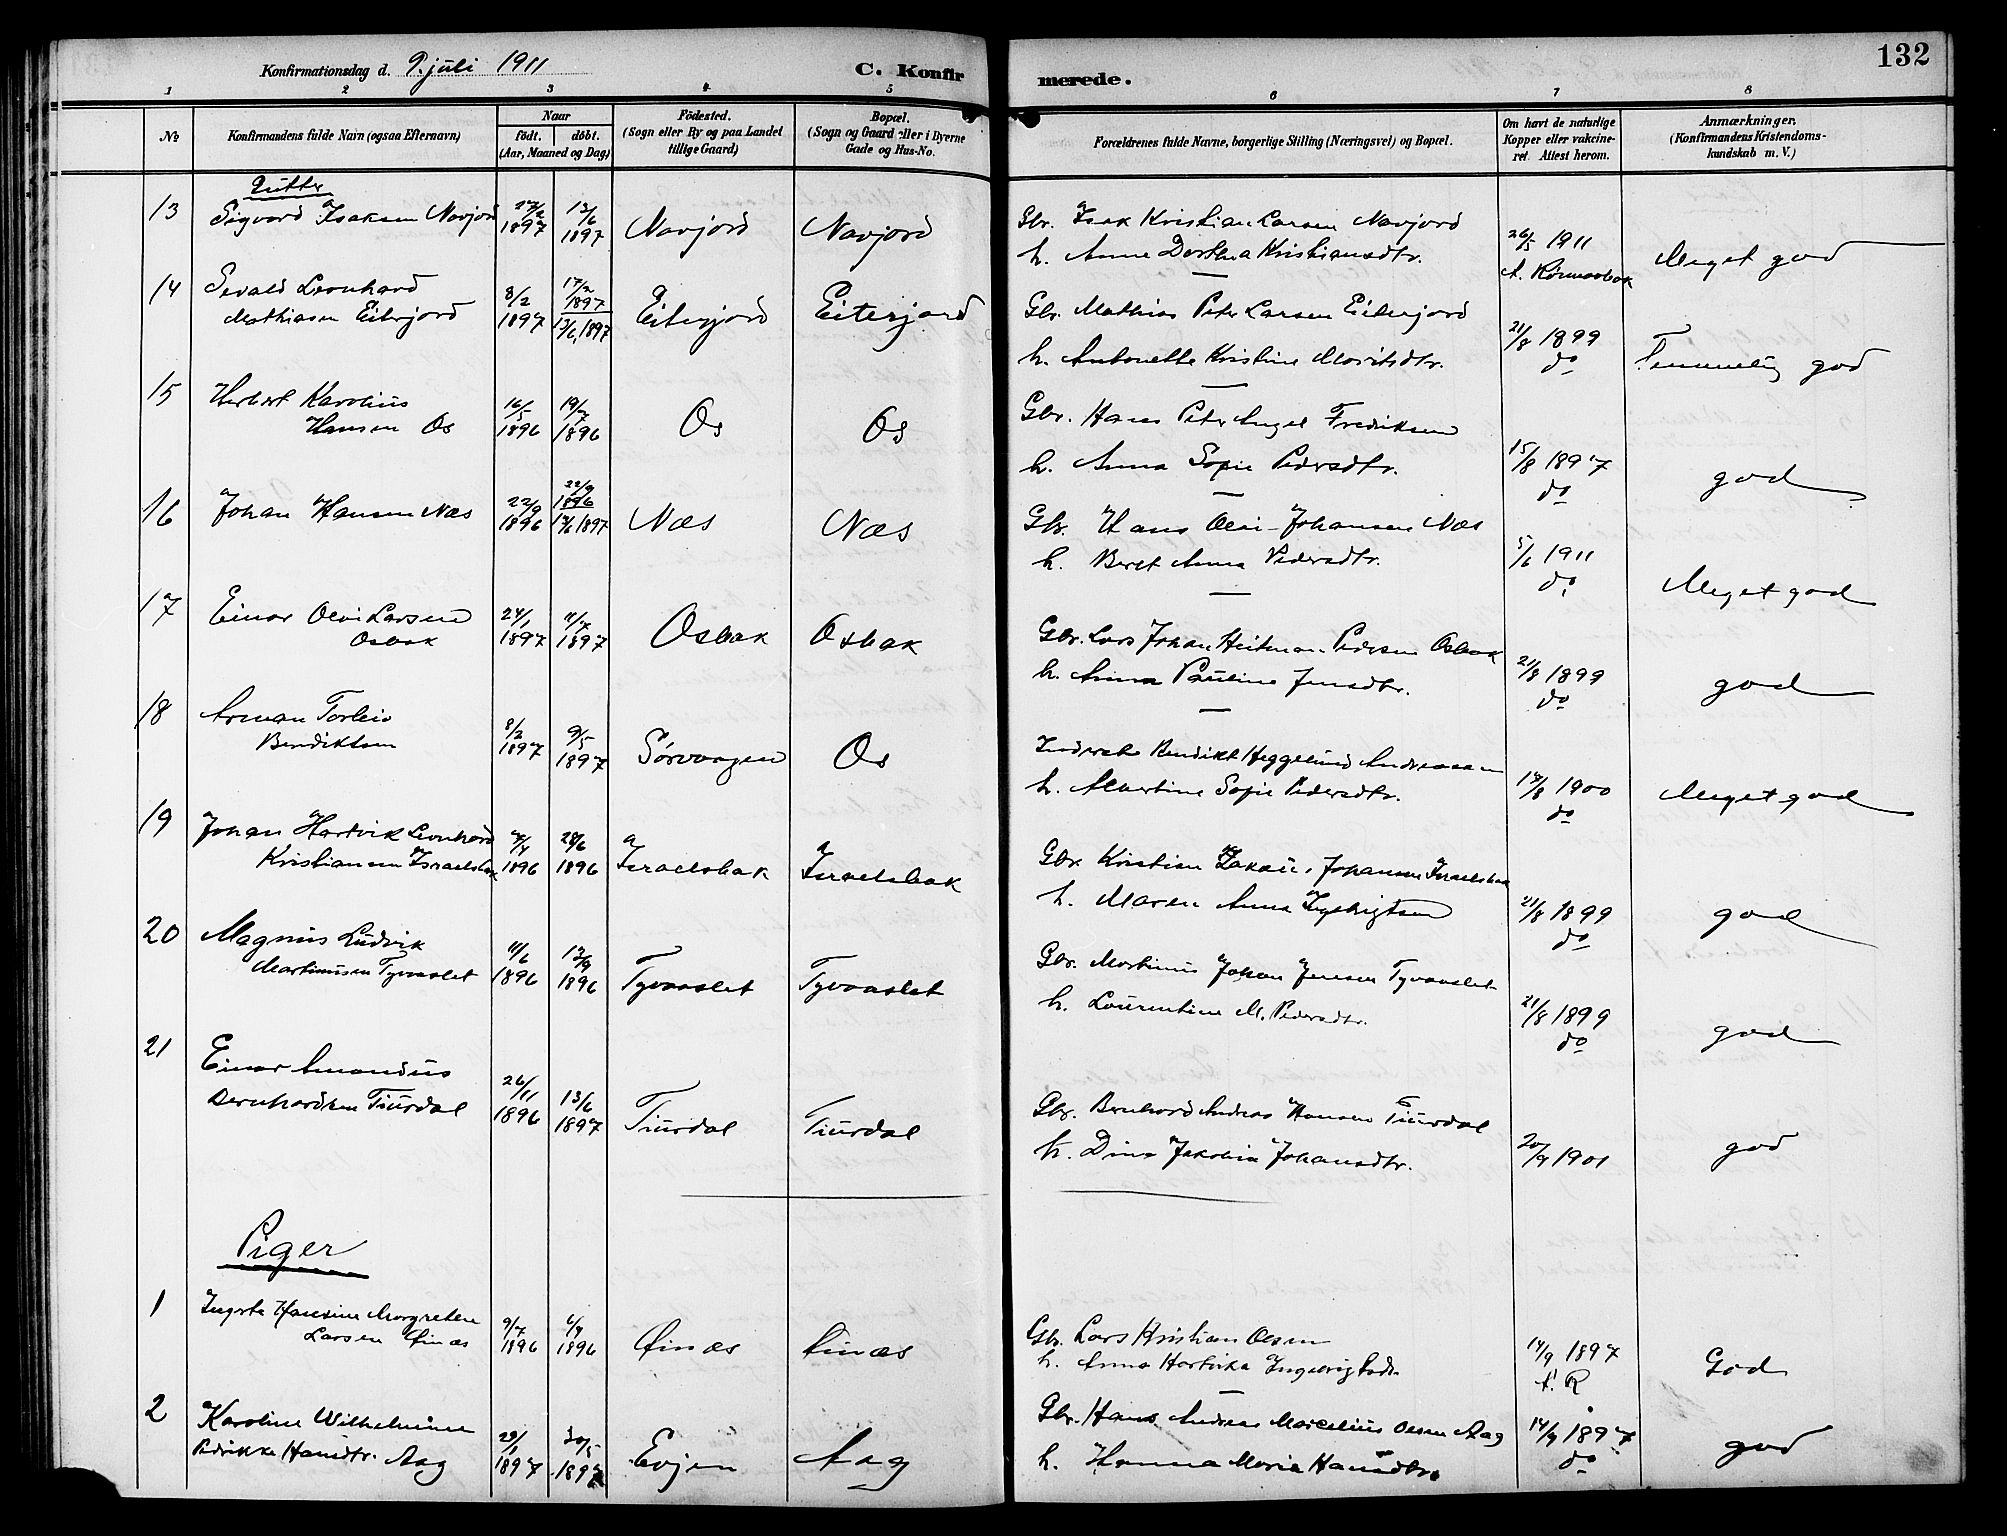 132
Konfirmationsdag d. 9. juli 1911 C. Konfirmerede.
1 2 3 4 5 6 7 8
№ Konfirmandens fulde Navn (ogsaa Efternavn) Naar födt. döbt. (Aar, Maaned og Dag) Födested. (Sogn eller By og paa Landet tillige Gaard) Bopæl. (Sogn og Gaard eller i Byerne Gade og Hus-No. Forældrenes fulde Navne, borgerlige Stilling (Næringsvei) og Bopæl. Om havt de naturlige Kopper eller vakcineret. Attest herom. Anmærkninger. (Konfirmandens Kristendomskundskab m. V.)
Gutter
13 Sigvard Isaksen Navjord 1897 13/6 1897 Navjord Navjord Gbr. Isak Kristian Larsen Navjord 26/5 1911 Meget god
h. Anna Dorthea Kristiansdtr.
14 Sevald Leonhard 8/2 1897 17/2 1897 Eiterjord Eiterjord Gbr. Mathias Peter Larsen Eiterjord 21/8 1899 Temmelig god
Mathiasen Eiterjord 13/6 1897 h. Antonette Kristine Moritsdtr. do
15 Herbert Karolius 16/5 1896 19/7 1896 Os Os Gbr. Hans Peter Angel Fredriksen 15/8 1897 god
Hansen Os h. Anna Sofie Pedersdtr. do
16 Johan Hansen Næs 22/9 1896 22/9 1896 Næs Næs Gbr. Hans Olai Johansen Næs 5/6 1911 Meget god
13/6 1897 h. Beret Anna Pedersdtr. do
17 Einar Olai Larsen 24/1 1897 11/7 1897 Osbak Osbak Gbr. Lars Johan Heitman Pedersen Osbak 21/8 1899 god
Osbak h. Anna Pauline Jensdtr. do
18 Arman Torleiv 8/2 1897 9/5 1897 Sørvaagen Os Inderst Bendikt Heggelund Andreassen 14/8 1900 Meget god
Bendiktsen h. Albertine Sofie Pedersdtr. do
19 Johan Hartvik Leonhard 1896 28/6 1896 Israelsbak Israelsbak Gbr. Kristian Johansen Israelsbak 21/8 1899 god
Kristiansen Israelsbak h. Maren Anna Ingebrigtsen do
20 Magnus Ludvik 11/6 1896 13/9 1896 Tyvaaslet Tyvaaslet Gbr. Martinus Johan Jensen Tyvaaslet 21/8 1899 god
Martinusen Tyvaaslet h. Laurentine M. Pedersdtr. do
21 Einar Amandus 26/11 1896 13/6 1897 Tiurdal Tiurdal Gbr. Bernhard Andreas Hansen Tiurdal 20/9 1901 god
Bernhardsen Tiurdal h. Dina Jakobia Johansdtr.
Piger
1 Hansine Margrethe 9/7 1896 6/9 1896 Øinæs Øinæs Gbr. Lars Kristian Olsen 14/9 1897 God
Larsen Øinæs h. Anna Hartvika A. R
2 Karoline Wilhelmine 29/1 1897 30/5 1897 Evjen Aag Gbr. Hans Andreas Marcelius Olsen Aag 14/9 1897 god
Pedrikke Hansdtr. Aag h. Hanna Maria Hansdtr. do